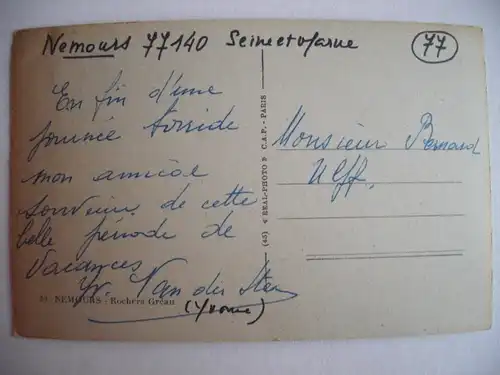 Nemours 77140 Seine et Marne
77
En fin d'une
journée torride
mon amical
souvenir de cette
belle période de
Vacances
Yv. Van der
(Yvonne)
34 NEMOURS - Rochers Gréau
(45) REAL-PHOTO C.A.P. - PARIS
Monsieur Bernard
Ulff.